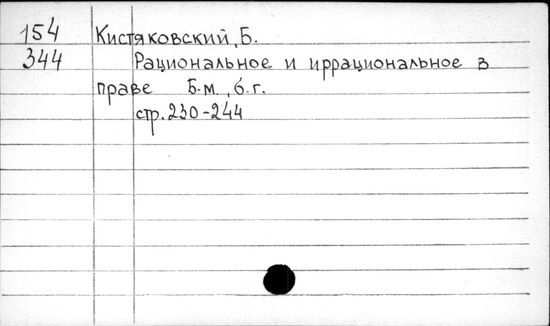 154 Кистяковский, Б.
344 Рациональное и иррациональное в
праве Б.м., б.г.
стр. 230-244